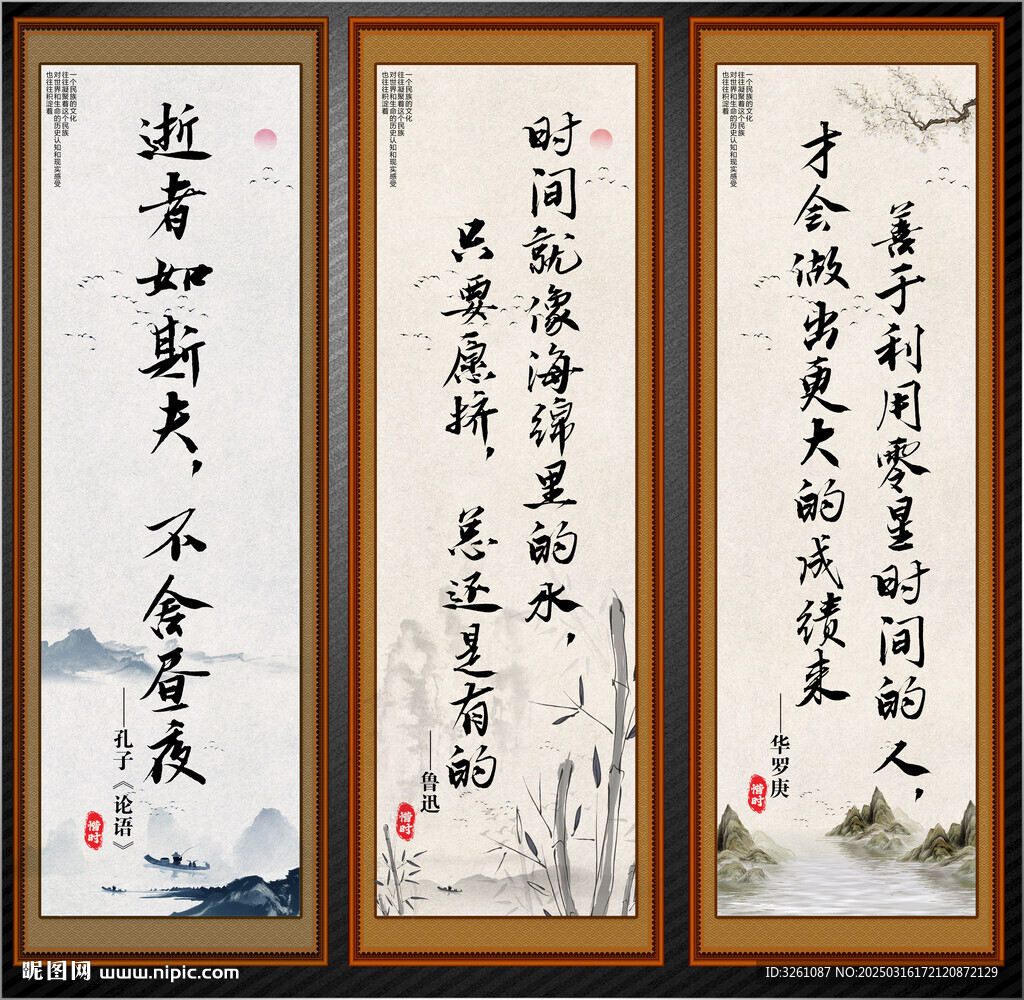 一个民族的文化
往往凝聚着这个民族
对世界和生命的历史认知和现实感受
也往往积淀着
逝者如斯夫，不舍昼夜
——孔子《论语》
惜时
一个民族的文化
往往凝聚着这个民族
对世界和生命的历史认知和现实感受
也往往积淀着
时间就像海绵里的水，
只要愿挤，总还是有的
——鲁迅
惜时
一个民族的文化
往往凝聚着这个民族
对世界和生命的历史认知和现实感受
也往往积淀着
善于利用零星时间的人，
才会做出更大的成绩来
——华罗庚
惜时
昵图网 www.nipic.com
ID:3261087 NO:20250316172120872129